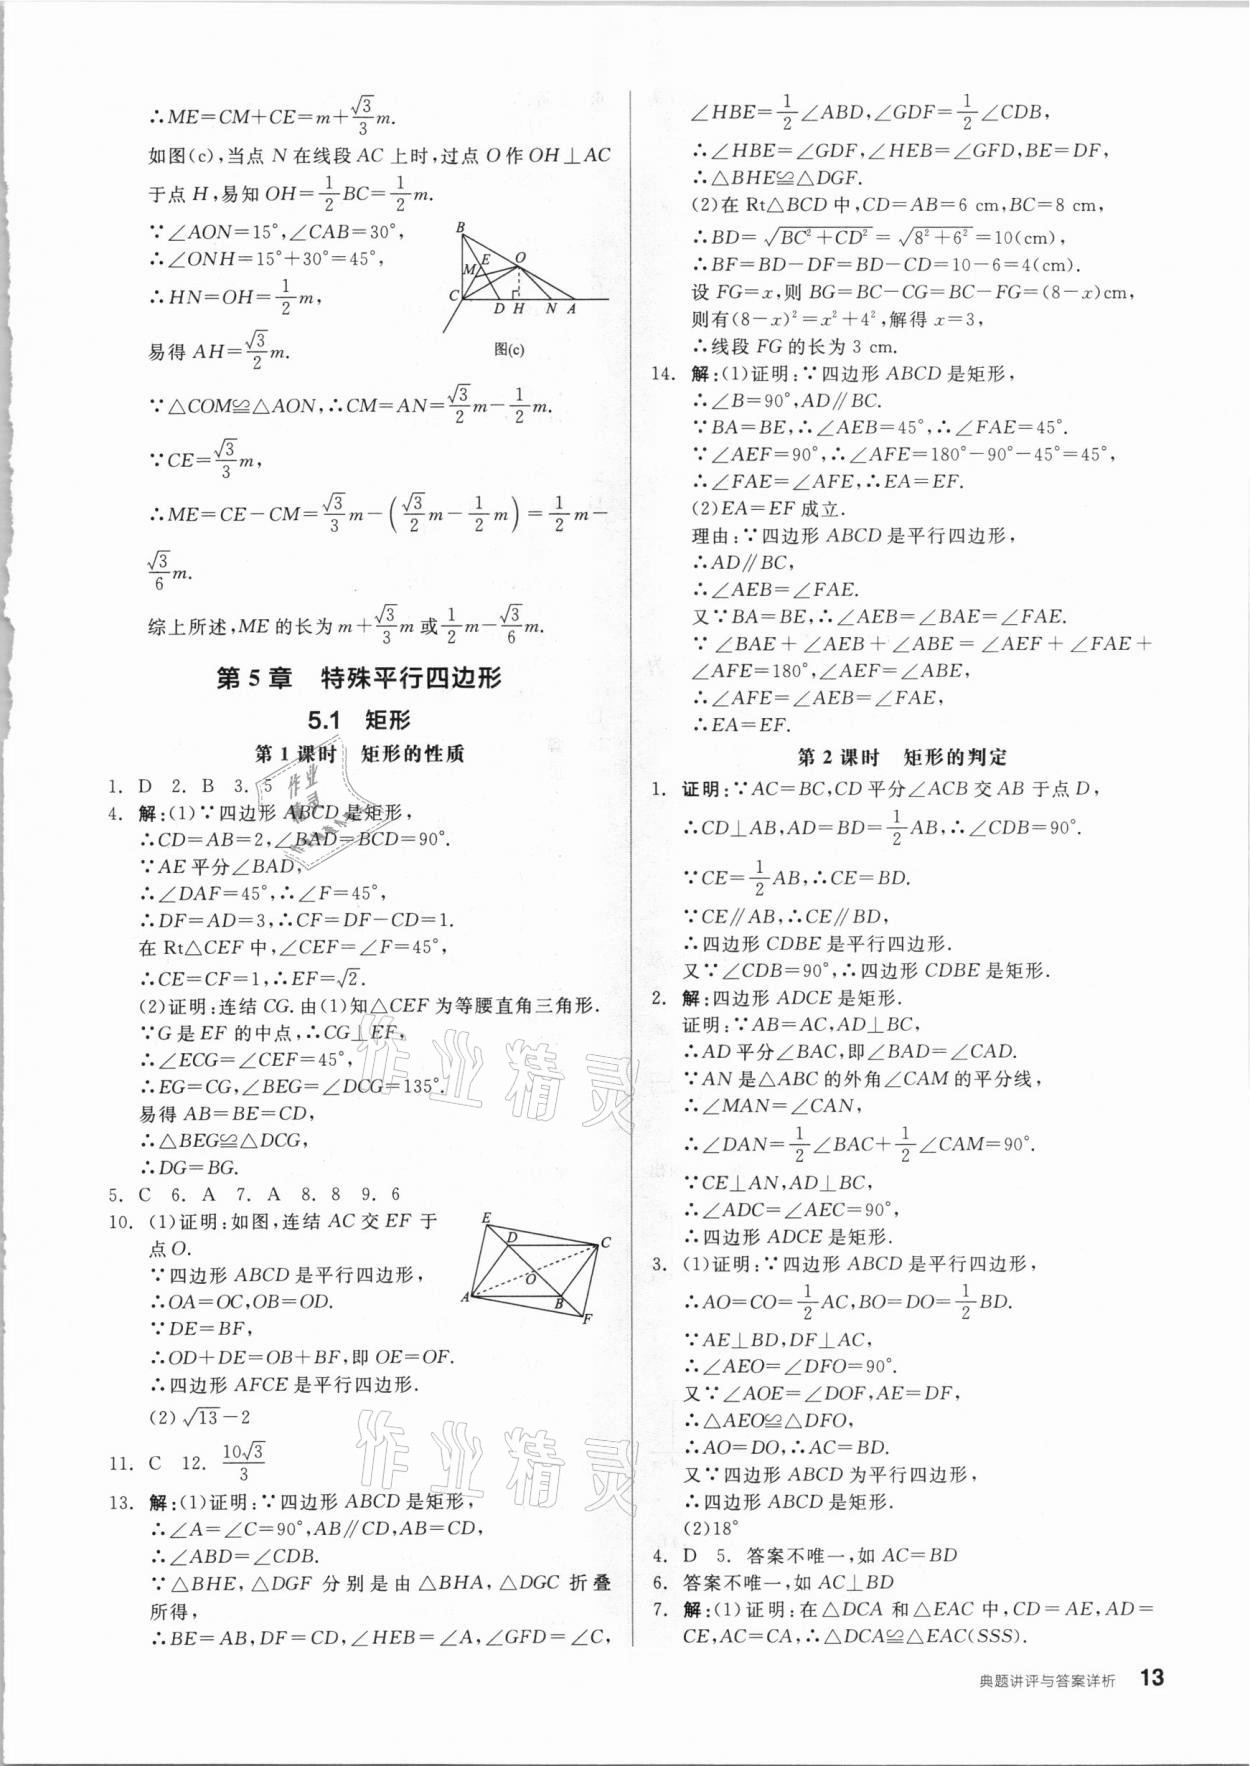 ∴ME=CM+CE=m+√3/3 m.
如图(c),当点 N 在线段 AC 上时,过点 O 作 OH⊥AC
于点 H,易知 OH=1/2 BC=1/2 m.
∵∠AON=15°,∠CAB=30°,
∴∠ONH=15°+30°=45°,
∴HN=OH=1/2 m,
易得 AH=√3/2 m.
B
E
O
M
C
D H N A
图(c)
∵△COM≌△AON,∴CM=AN=√3/2 m-1/2 m.
∵CE=√3/3 m,
∴ME=CE-CM=√3/3 m-(√3/2 m-1/2 m)=1/2 m-
√3/6 m.
综上所述,ME 的长为 m+√3/3 m 或 1/2 m-√3/6 m.
第 5 章 特殊平行四边形
5.1 矩形
第 1 课时 矩形的性质
1. D 2. B 3. 5
4. 解:(1)∵四边形 ABCD 是矩形,
∴CD=AB=2,∠BAD=BCD=90°.
∵AE 平分∠BAD,
∴∠DAF=45°,∴∠F=45°,
∴DF=AD=3,∴CF=DF-CD=1.
在 Rt△CEF 中,∠CEF=∠F=45°,
∴CE=CF=1,∴EF=√2.
(2)证明:连结 CG.由(1)知△CEF 为等腰直角三角形.
∵G是 EF 的中点,∴CG⊥EF,
∴∠ECG=∠CEF=45°,
∴EG=CG,∠BEG=∠DCG=135°.
易得 AB=BE=CD,
∴△BEG≌△DCG,
∴DG=BG.
5. C 6. A 7. A 8. 8 9. 6
10. (1)证明:如图,连结 AC 交 EF 于
点O.
∵四边形 ABCD 是平行四边形,
∴OA=OC,OB=OD.
∵DE=BF,
∴OD+DE=OB+BF,即 OE=OF.
∴四边形 AFCE 是平行四边形.
(2)√13-2
E
D
C
O
A
B
F
11. C 12. 10√3/3
13. 解:(1)证明:∵四边形 ABCD 是矩形,
∴∠A=∠C=90°,AB∥CD,AB=CD,
∴∠ABD=∠CDB.
∵△BHE,△DGF 分别是由△BHA,△DGC 折叠
所得,
∴BE=AB,DF=CD,∠HEB=∠A,∠GFD=∠C,
∠HBE=1/2∠ABD,∠GDF=1/2∠CDB,
∴∠HBE=∠GDF,∠HEB=∠GFD,BE=DF,
∴△BHE≌△DGF.
(2)在 Rt△BCD 中,CD=AB=6 cm,BC=8 cm,
∴BD=√(BC²+CD²)=√(8²+6²)=10(cm),
∴BF=BD-DF=BD-CD=10-6=4(cm).
设 FG=x,则 BG=BC-CG=BC-FG=(8-x)cm,
则有(8-x)²=x²+4²,解得 x=3,
∴线段 FG 的长为 3 cm.
14. 解:(1)证明:∵四边形 ABCD 是矩形,
∴∠B=90°,AD∥BC.
∵BA=BE,∴∠AEB=45°,∴∠FAE=45°.
∵∠AEF=90°,∴∠AFE=180°-90°-45°=45°,
∴∠FAE=∠AFE,∴EA=EF.
(2)EA=EF 成立.
理由:∵四边形 ABCD 是平行四边形,
∴AD∥BC,
∴∠AEB=∠FAE.
又∵BA=BE,∴∠AEB=∠BAE=∠FAE.
∵∠BAE+∠AEB+∠ABE=∠AEF+∠FAE+
∠AFE=180°,∠AEF=∠ABE,
∴∠AFE=∠AEB=∠FAE,
∴EA=EF.
第 2 课时 矩形的判定
1. 证明:∵AC=BC,CD 平分∠ACB 交 AB 于点 D,
∴CD⊥AB,AD=BD=1/2 AB,∴∠CDB=90°.
∵CE=1/2 AB,∴CE=BD.
∵CE∥AB,∴CE∥BD,
∴四边形 CDBE 是平行四边形.
又∵∠CDB=90°,∴四边形 CDBE 是矩形.
2. 解:四边形 ADCE 是矩形.
证明:∵AB=AC,AD⊥BC,
∴AD 平分∠BAC,即∠BAD=∠CAD.
∵AN 是△ABC 的外角∠CAM 的平分线,
∴∠MAN=∠CAN,
∴∠DAN=1/2∠BAC+1/2∠CAM=90°.
∵CE⊥AN,AD⊥BC,
∴∠ADC=∠AEC=90°,
∴四边形 ADCE 是矩形.
3. (1)证明:∵四边形 ABCD 是平行四边形,
∴AO=CO=1/2 AC,BO=DO=1/2 BD.
∵AE⊥BD,DF⊥AC,
∴∠AEO=∠DFO=90°.
又∵∠AOE=∠DOF,AE=DF,
∴△AEO≌△DFO,
∴AO=DO,∴AC=BD.
又∵四边形 ABCD 为平行四边形,
∴四边形 ABCD 是矩形.
(2)18°
4. D 5. 答案不唯一,如 AC=BD
6. 答案不唯一,如 AC⊥BD
7. 解:(1)证明:在△DCA 和△EAC 中,CD=AE,AD=
CE,AC=CA,∴△DCA≌△EAC(SSS).
作业精灵
作业精灵
作业精灵
典题讲评与答案详析 13